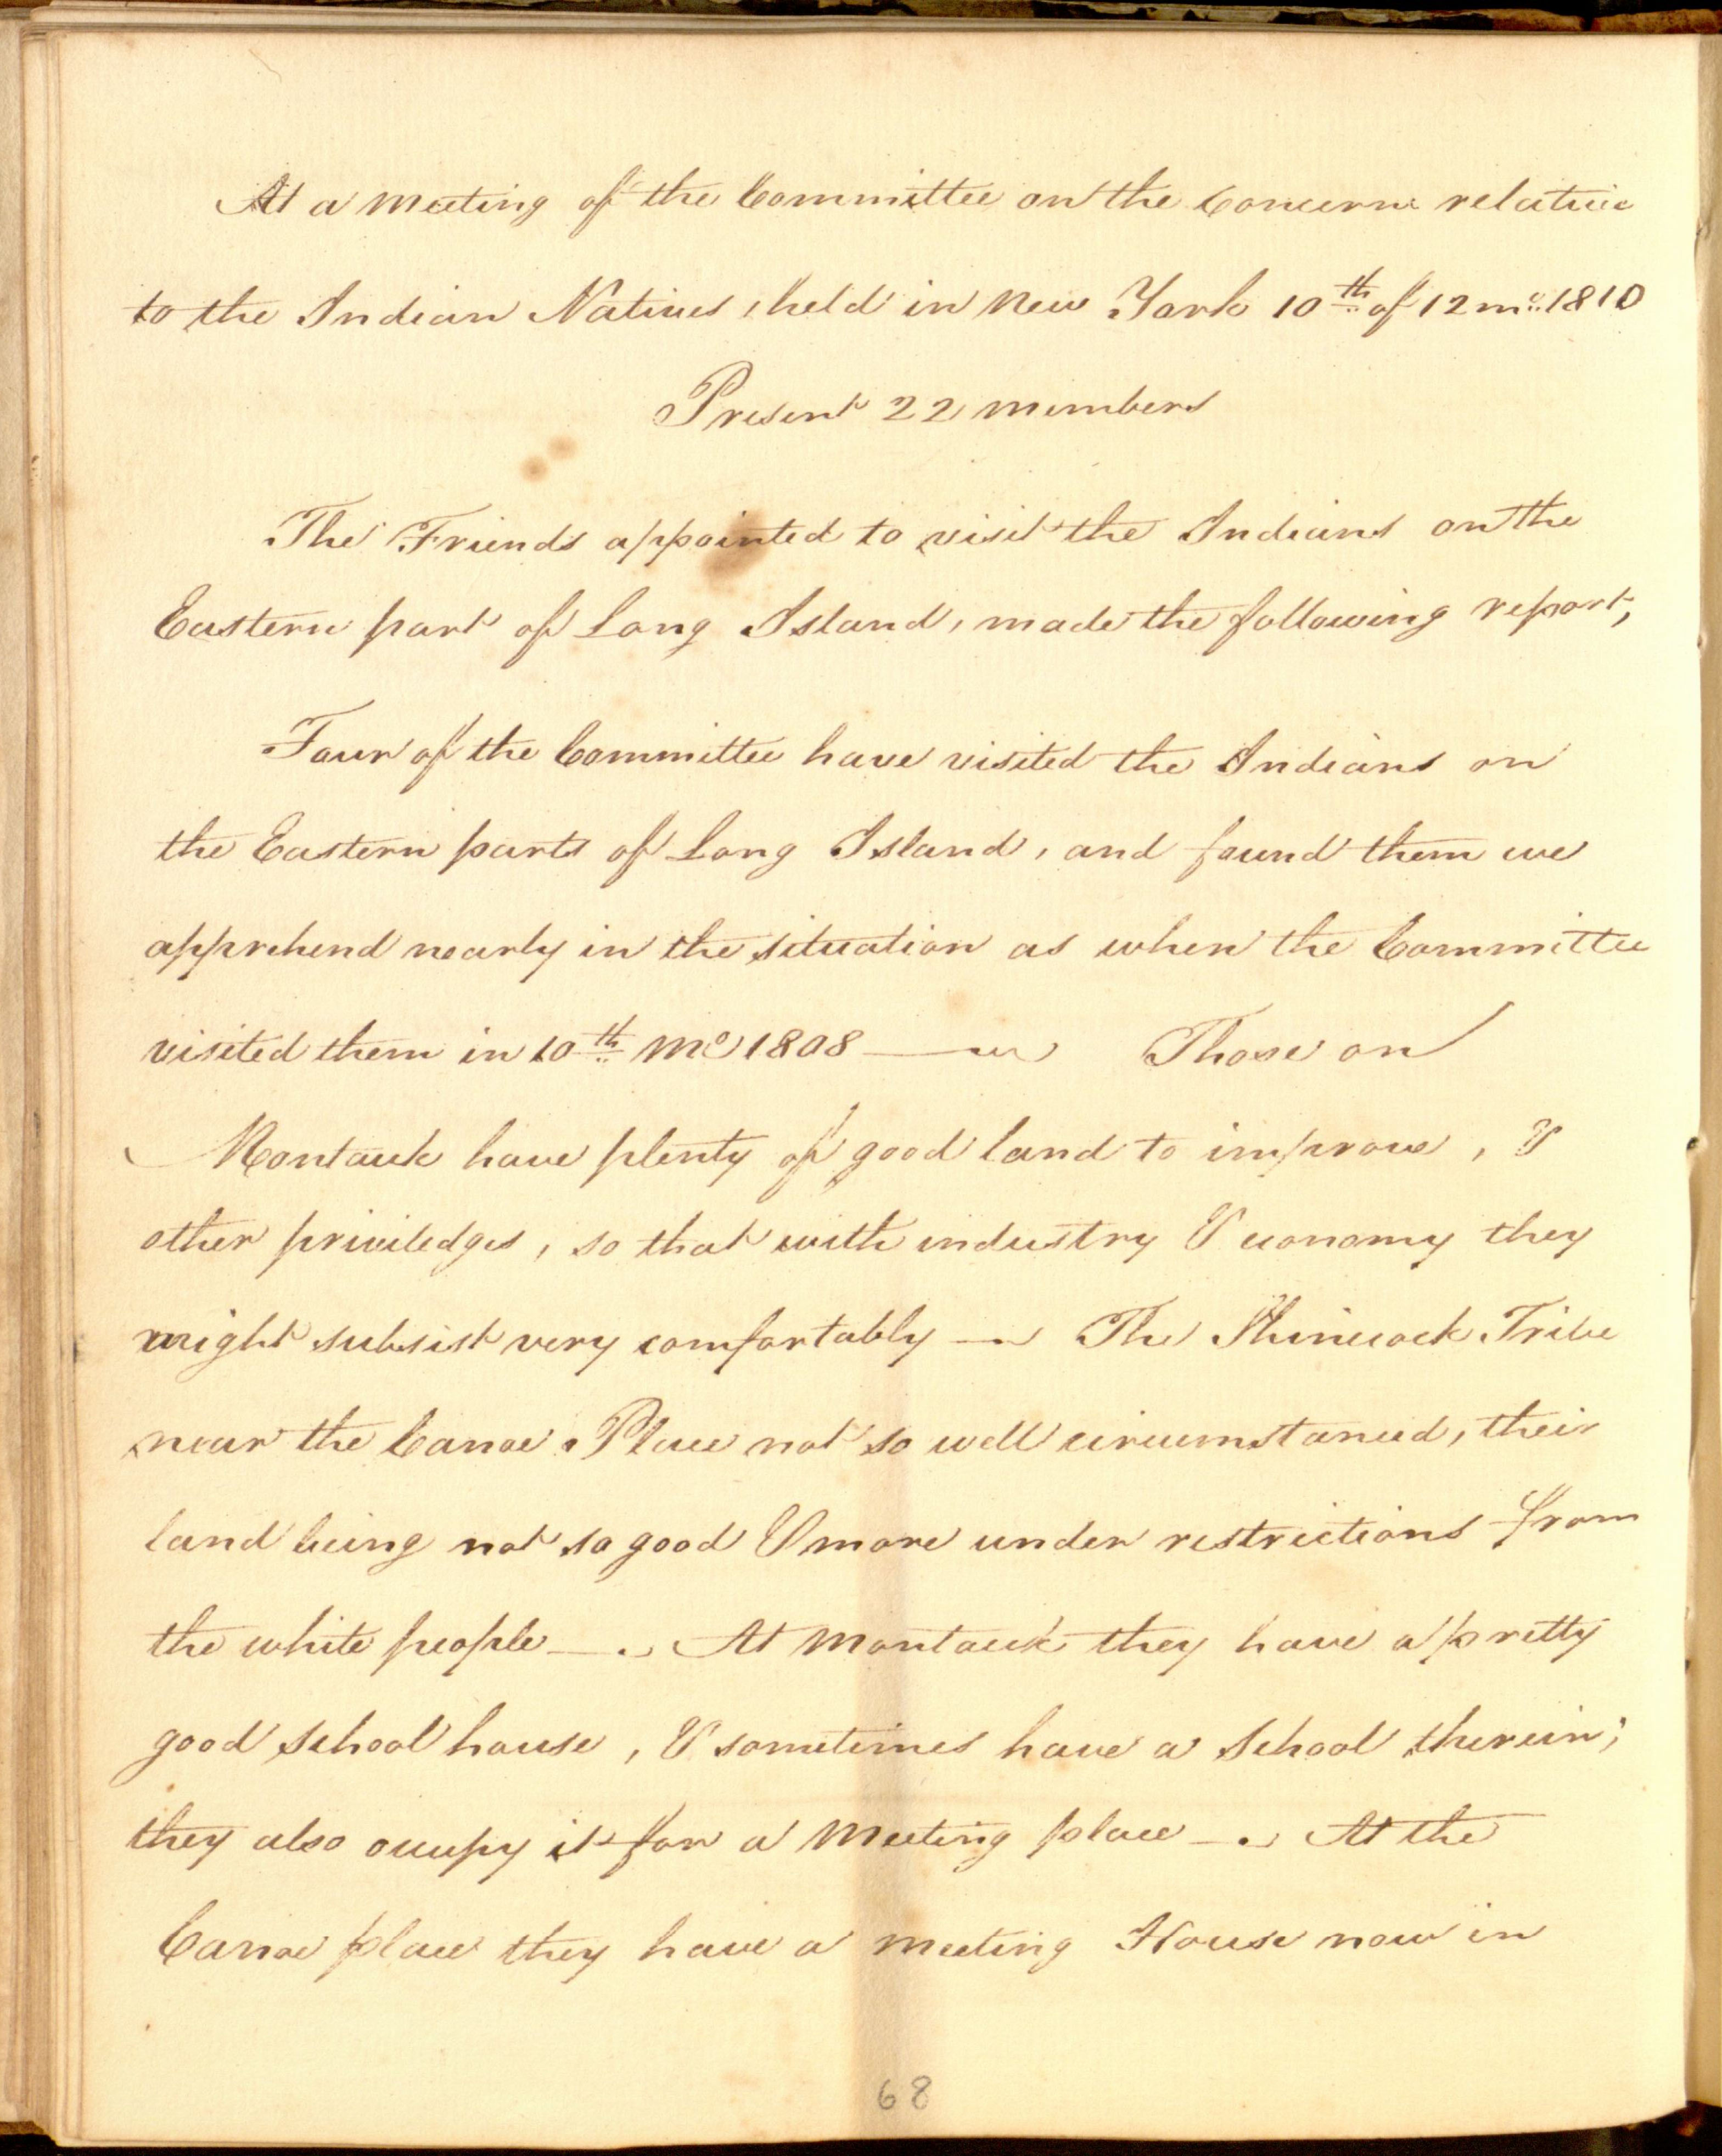 At a meeting of the Committee on the Concern relative
to the Indian Natives, held in New York 10th of 12 mo. 1810
Present 22 members
The Friends appointed to visit the Indians on the
Eastern part of Long Island, made the following report,
Four of the Committee have visited the Indians on
the Eastern parts of Long Island, and found them we
apprehend nearly in the situation as when the Committee
visited them in 10th Mo 1808 — Those on
Montauk have plenty of good land to improve, &
other priviledges, so that with industry & economy they
might subsist very comfortably — The Shinecock Tribe
near the Canoe Place not so well circumstanced, their
land being not so good & more under restrictions from
the white people —. At Montauk they have a pretty
good School house, & sometimes have a School therein;
they also occupy it for a Meeting place —. At the
Canoe place they have a meeting House now in
68